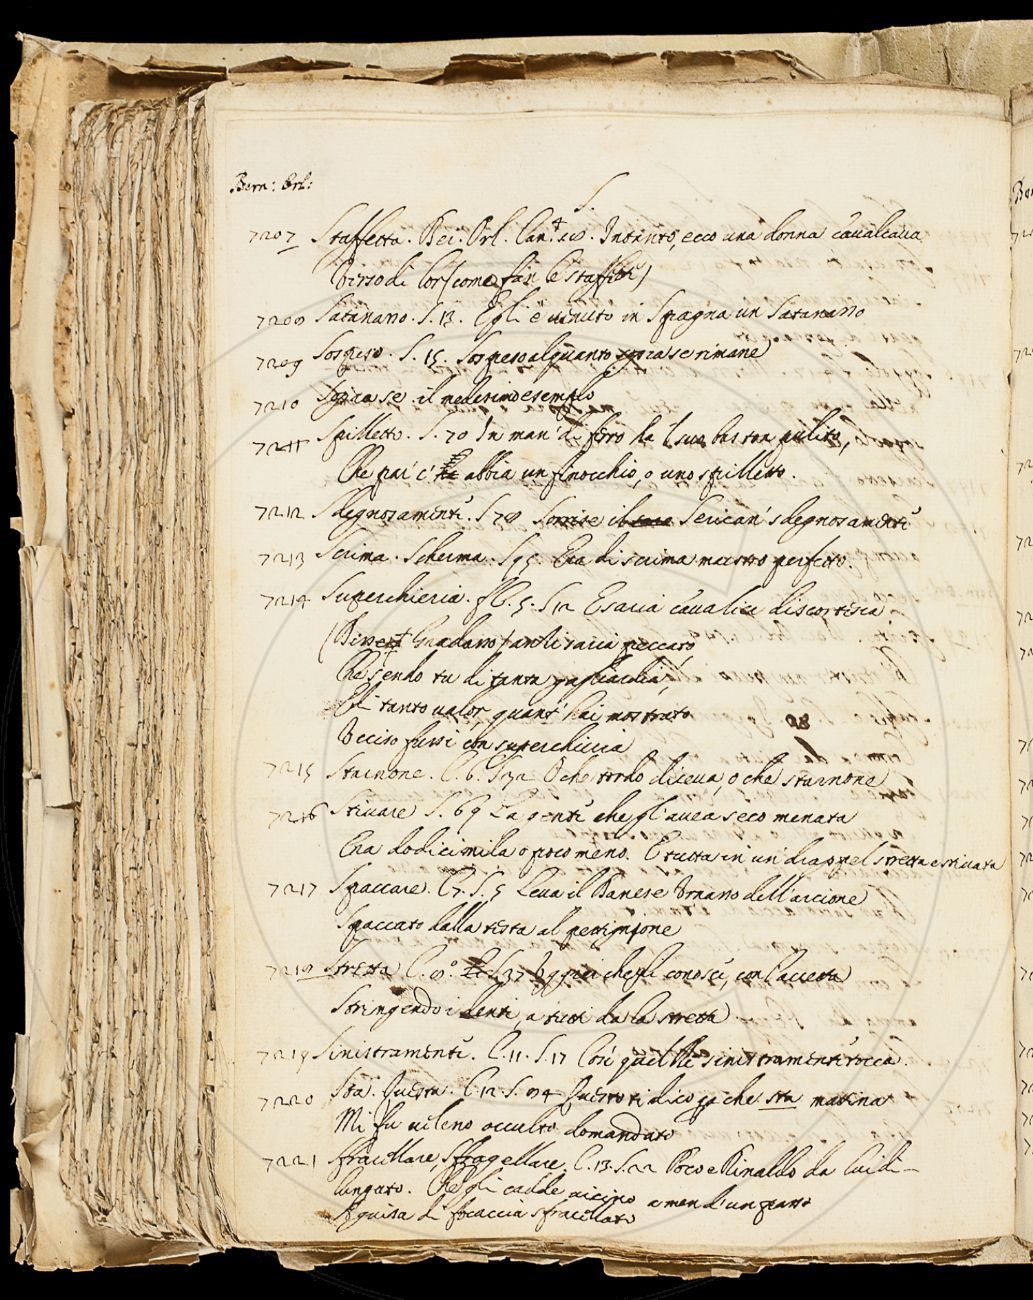 Bern: Orl:
S.
7207 Staffetta. Bei. Orl. Can. 4 Intanto, ecco una donna cavalcava
Verso di lor (come fan le staffette)
7208 Satanasso. S. 13. Egli è venuto in Spagna un Satanasso
7209 Sospeso. S. 15. Sospeso alquanto sopra se rimane
7210 Sopra se il medesimo esempio
7211 Spilletto. S. 70 In man di ferro ha suo baston pulito,
Che par c'abbia un finocchio, o uno spilletto.
7212 Sdegnosamente. S Sorrise il Serican sdegnosamente
7213 Scrima. Scherma. S 95. Era di scrima maestro perfetto.
7214 Superchieria. C. 5. S 12 E saria cavalier discortesia
(Disse Gradasso) anzi saria peccato
Che sendo tu di tanta gagliardia,
Di tanto valor quant' hai mostrato
Ucciso fussi con superchieria
28
7215 Starnone. C. 6. S 32 O che tordo diceva, o che starnone
7216 Stivare S. 69 La gente che gl'avea seco menata
Era dodicimila o poco meno. E tutta in un drappel stretta e stivata
7217 Spaccare. C 7. S. 5 Leva il Danese Urnasso dell'arcione
Spaccato dalla testa al pettignone
7218 Stretta C. S 37 che gli conosce, con l'accetta
Stringendo i denti, a tutti da la stretta
7219 Sinistramente. C. 11. S. 17 Così quel sinistramente tocca.
7220 Sta. Questa. C. 12. S. 84 Questo ti dico che sta matina
Mi fu veleno occulto domandato
7221 Sfracellare, Sfragellare. C. 13. S. 22 Poco e Rinaldo da lui di-
lungato. Che gli cadde vicino a men d'un
A guisa di focaccia sfracellato